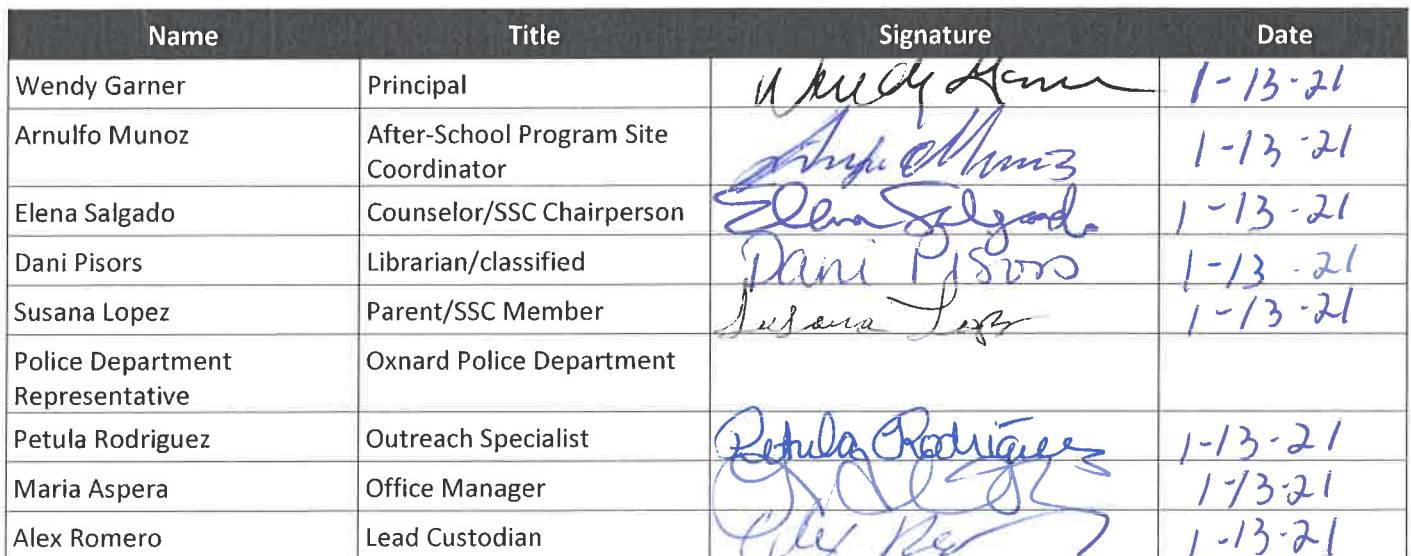 Name Title Signature Date
Wendy Garner Principal Wendy Garner 1-13-21
Arnulfo Munoz After-School Program Site
Coordinator Munoz 1-13-21
Elena Salgado Counselor/SSC Chairperson Elena Salgado 1-13-21
Dani Pisors Librarian/classified Dani Pisors 1-13-21
Susana Lopez Parent/SSC Member Susana Lopez 1-13-21
Police Department Oxnard Police Department
Representative
Petula Rodriguez Outreach Specialist Petula Rodriguez 1-13-21
Maria Aspera Office Manager 1-13-21
Alex Romero Lead Custodian Alex 1-13-21